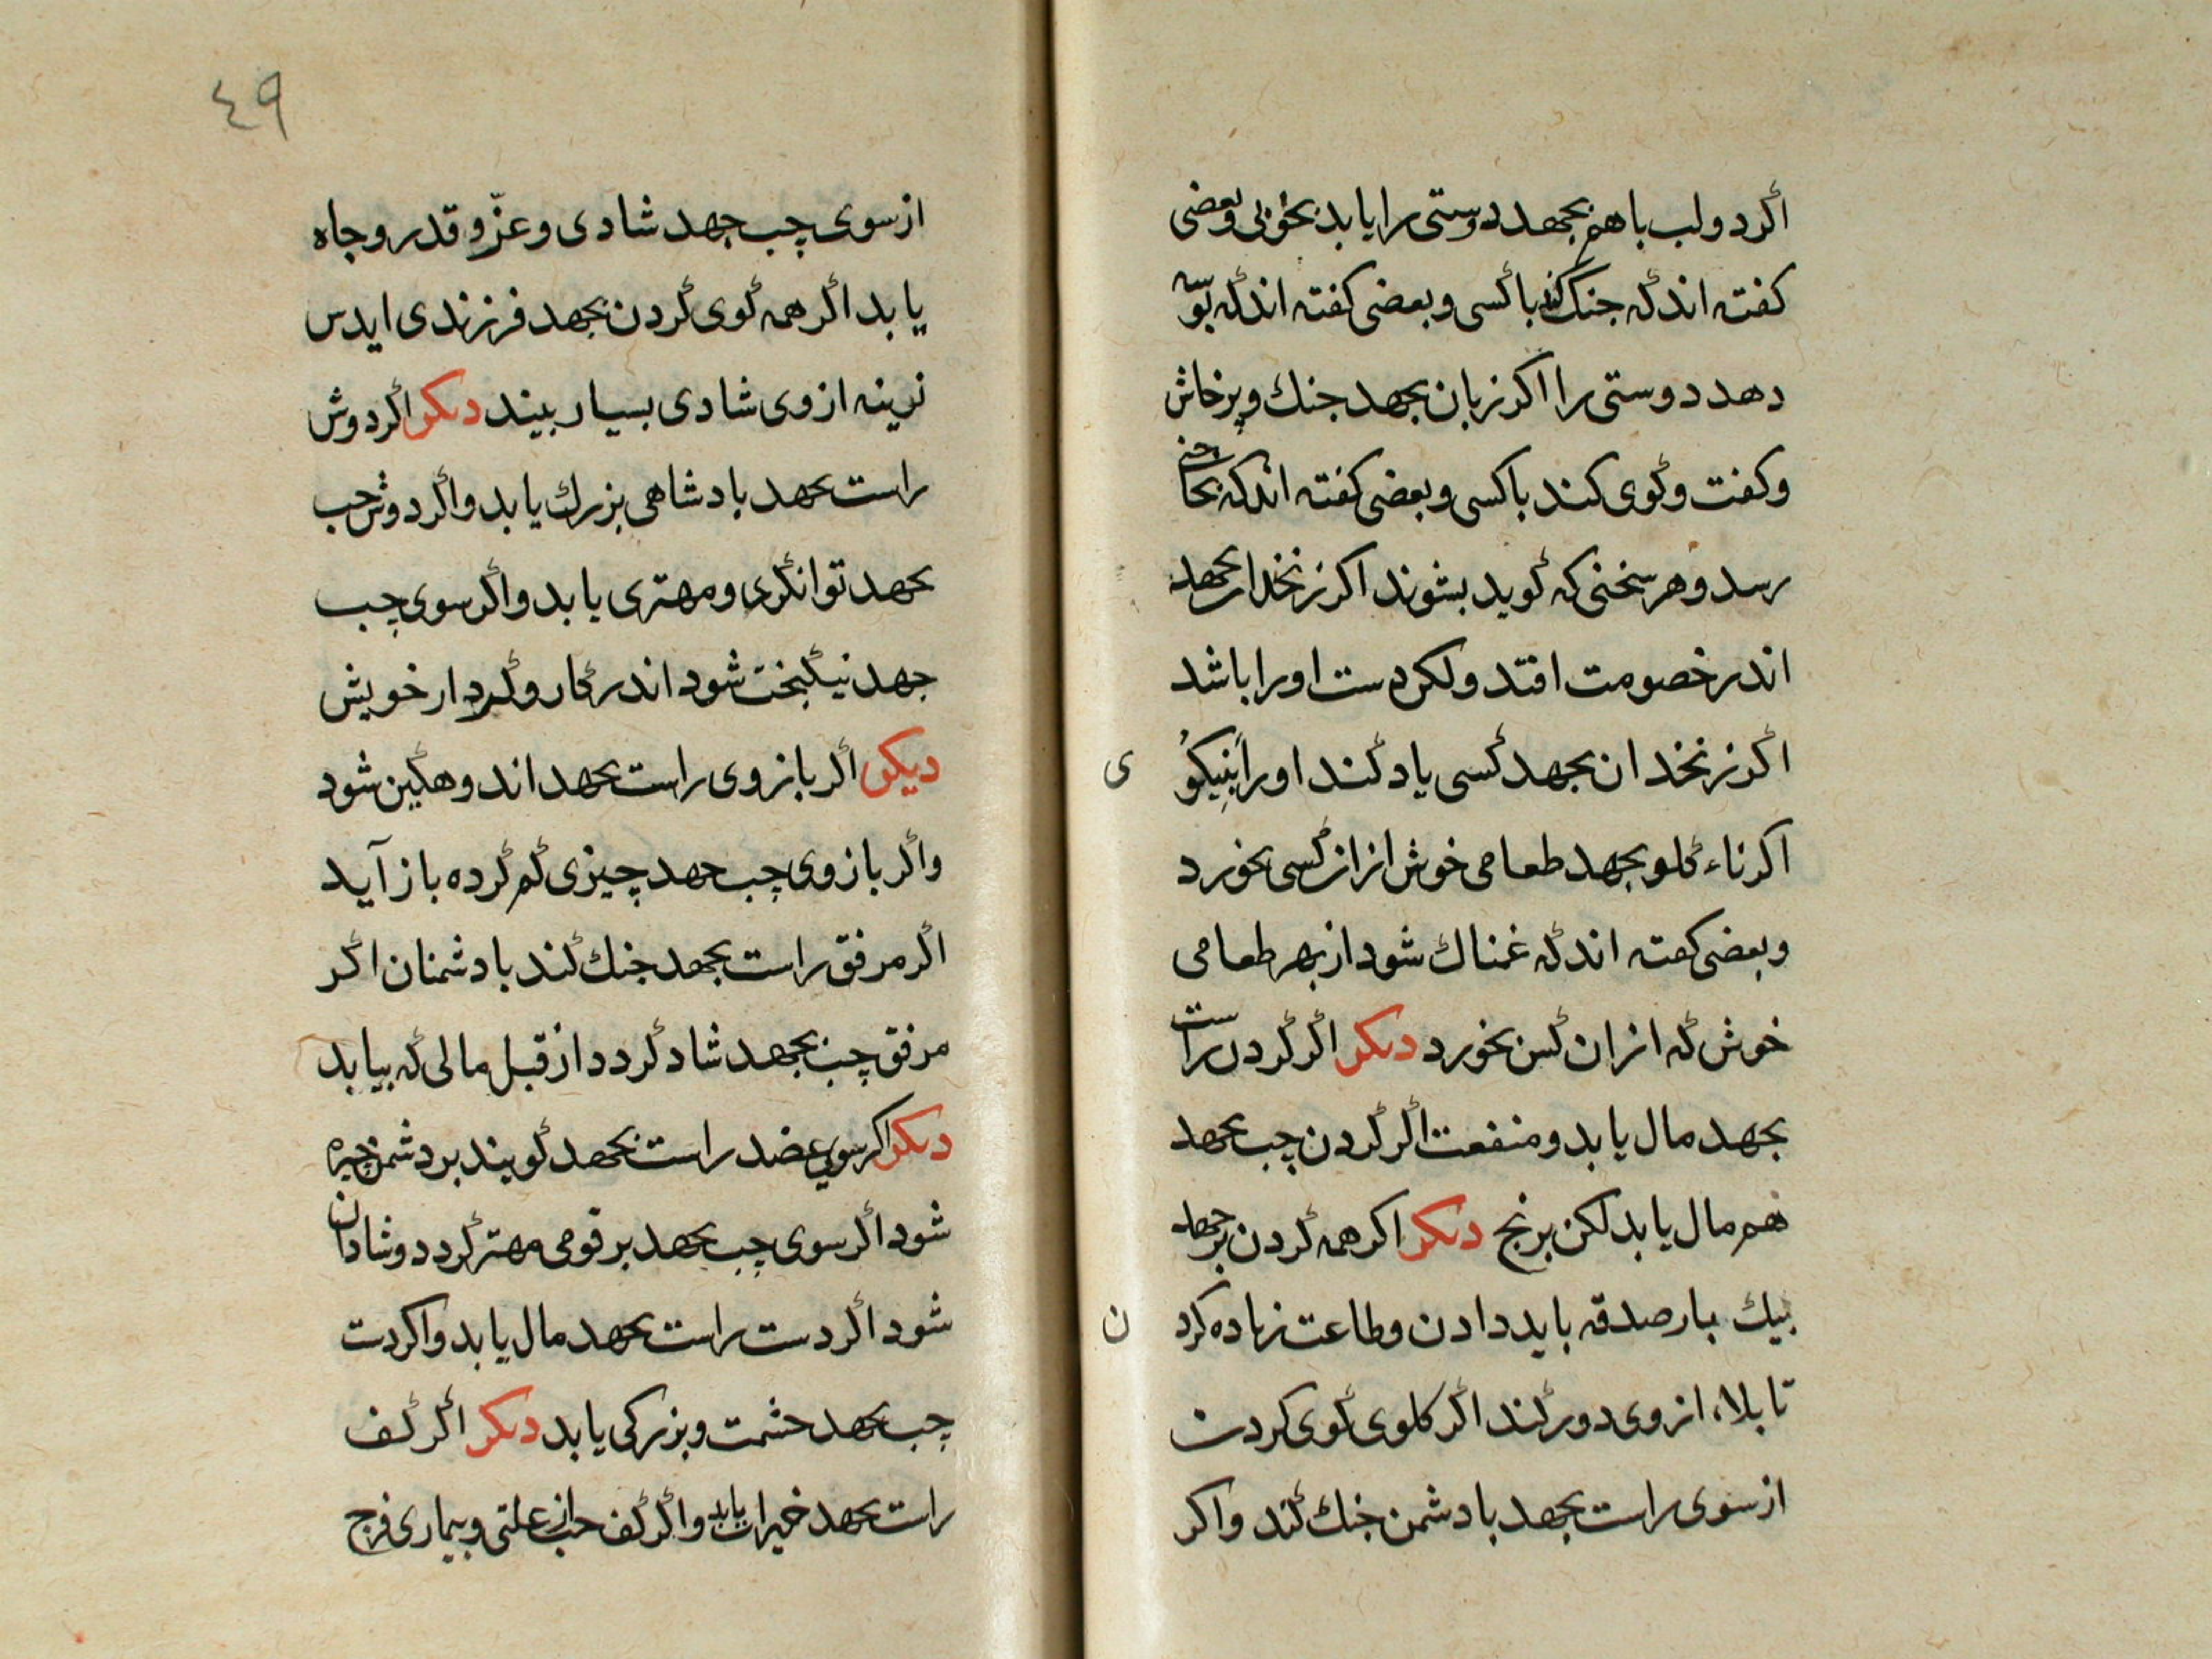 اکر دو لب با هم بجهد دوستی را یابد بخوبی وبعضی
کفته اند که جنک کند با کسی و بعضی کفته اند که بوسه
دهد دوستی را اکر زبان بجهد جنك و پرخاش
وکفت وکوی کند با کسی و بعضی کفته اند که بحاجتی
رسد وهر سخنی که کوید بشنوند اکر زنخدان بجهد
اندر خصومت افتد ولکن دست او را باشد
اکر زنخدان بجهد کسی یاد کند او را بنیکوُ
ی
اکر ناء کلو بجهد طعامی خوش از ان کسی بخورد
وبعضی کفته اند که غمناك شود از بهر طعامی
خوش که از ان کس بخورد دیکر اکر کردن راست
بجهد مال یابد و منفعت اکر کردن چپ بجهد
هم مال یابد لکن برنج دیکر اکر همه کردن بجهد
بیك بار صدقه باید دادن وطاعت زیاده کرد
ن
تا بلاء از وی دور کند اکر کلوی کوی کردن
از سوی راست بجهد با دشمن جنك کند واکر
٤٩
از سوی چپ جهد شادی و عزّ و قدر و جاه
یابد اکر همه کوی کردن بجهد فرزندی ایدش
نرینه از وی شادی بسیار بیند دیکر اکر دوش
راست بجهد بادشاهی بزرك یابد واکر دوش چپ
بجهد توانکری و مهتری یابد واکر سوی چپ
جهد نیکبخت شود اندر کار و کردار خویش
دیکر اکر بازوی راست بجهد اندوهکین شود
واکر بازوی چپ جهد چیزی کم کرده باز آید
اکر مرفق راست بجهد جنك کند با دشمنان اکر
مرفق چپ بجهد شاد کردد از قبل مالی که بیابد
دیکر اکر سوی عضد راست بجهد کویند بر دشمن چیره
شود اکر سوی چپ بجهد بر قومی مهتر کردد و شادان
شود اکر دست راست بجهد مال یابد واکر دست
چپ بجهد حشمت و بزرکی یابد دیکر اکر کف
راست بجهد خیرات یابد واکر کف چپ از علتی و بیماری فرج